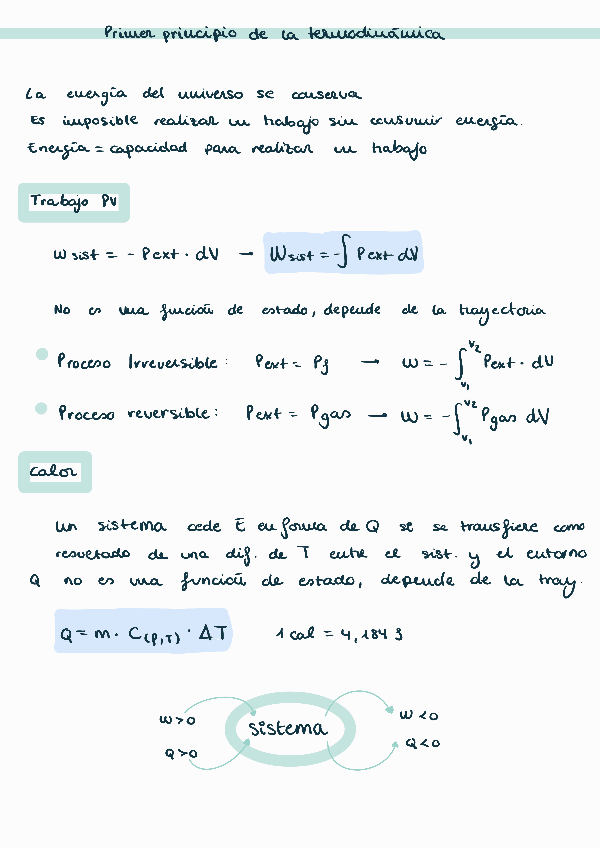 Primer principio de la termodinámica
La energía del universo se conserva
Es imposible realizar un trabajo sin consumir energía.
Energía = capacidad para realizar un trabajo
Trabajo PV
w sist = - Pext · dV → Wsist = -∫ Pext dV
No es una función de estado, depende de la trayectoria
Proceso Irreversible: Pext = Pf → W = - ∫V₁V₂ Pext · dV
Proceso reversible: Pext = Pgas → W = - ∫V₁V₂ Pgas dV
Calor
Un sistema cede E en forma de Q se se transfiere como
resultado de una dif. de T entre el sist. y el entorno
Q no es una función de estado, depende de la tray.
Q = m · C(P,T) · ΔT 1 cal = 4,184 J
W>0 sistema W<0
Q>0 Q<0